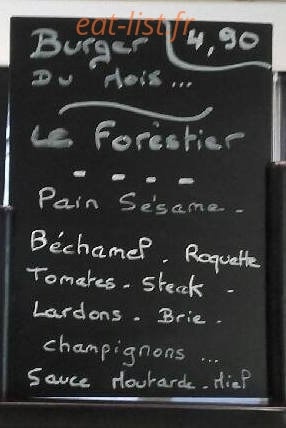 eat-list.fr
Burger 4,90
Du Mois ...
Le Forestier
- - - -
Pain Sésame -
Béchamel . Roquette
Tomates - Steak -
Lardons . Brie .
champignons ...
Sauce Moutarde - Miel